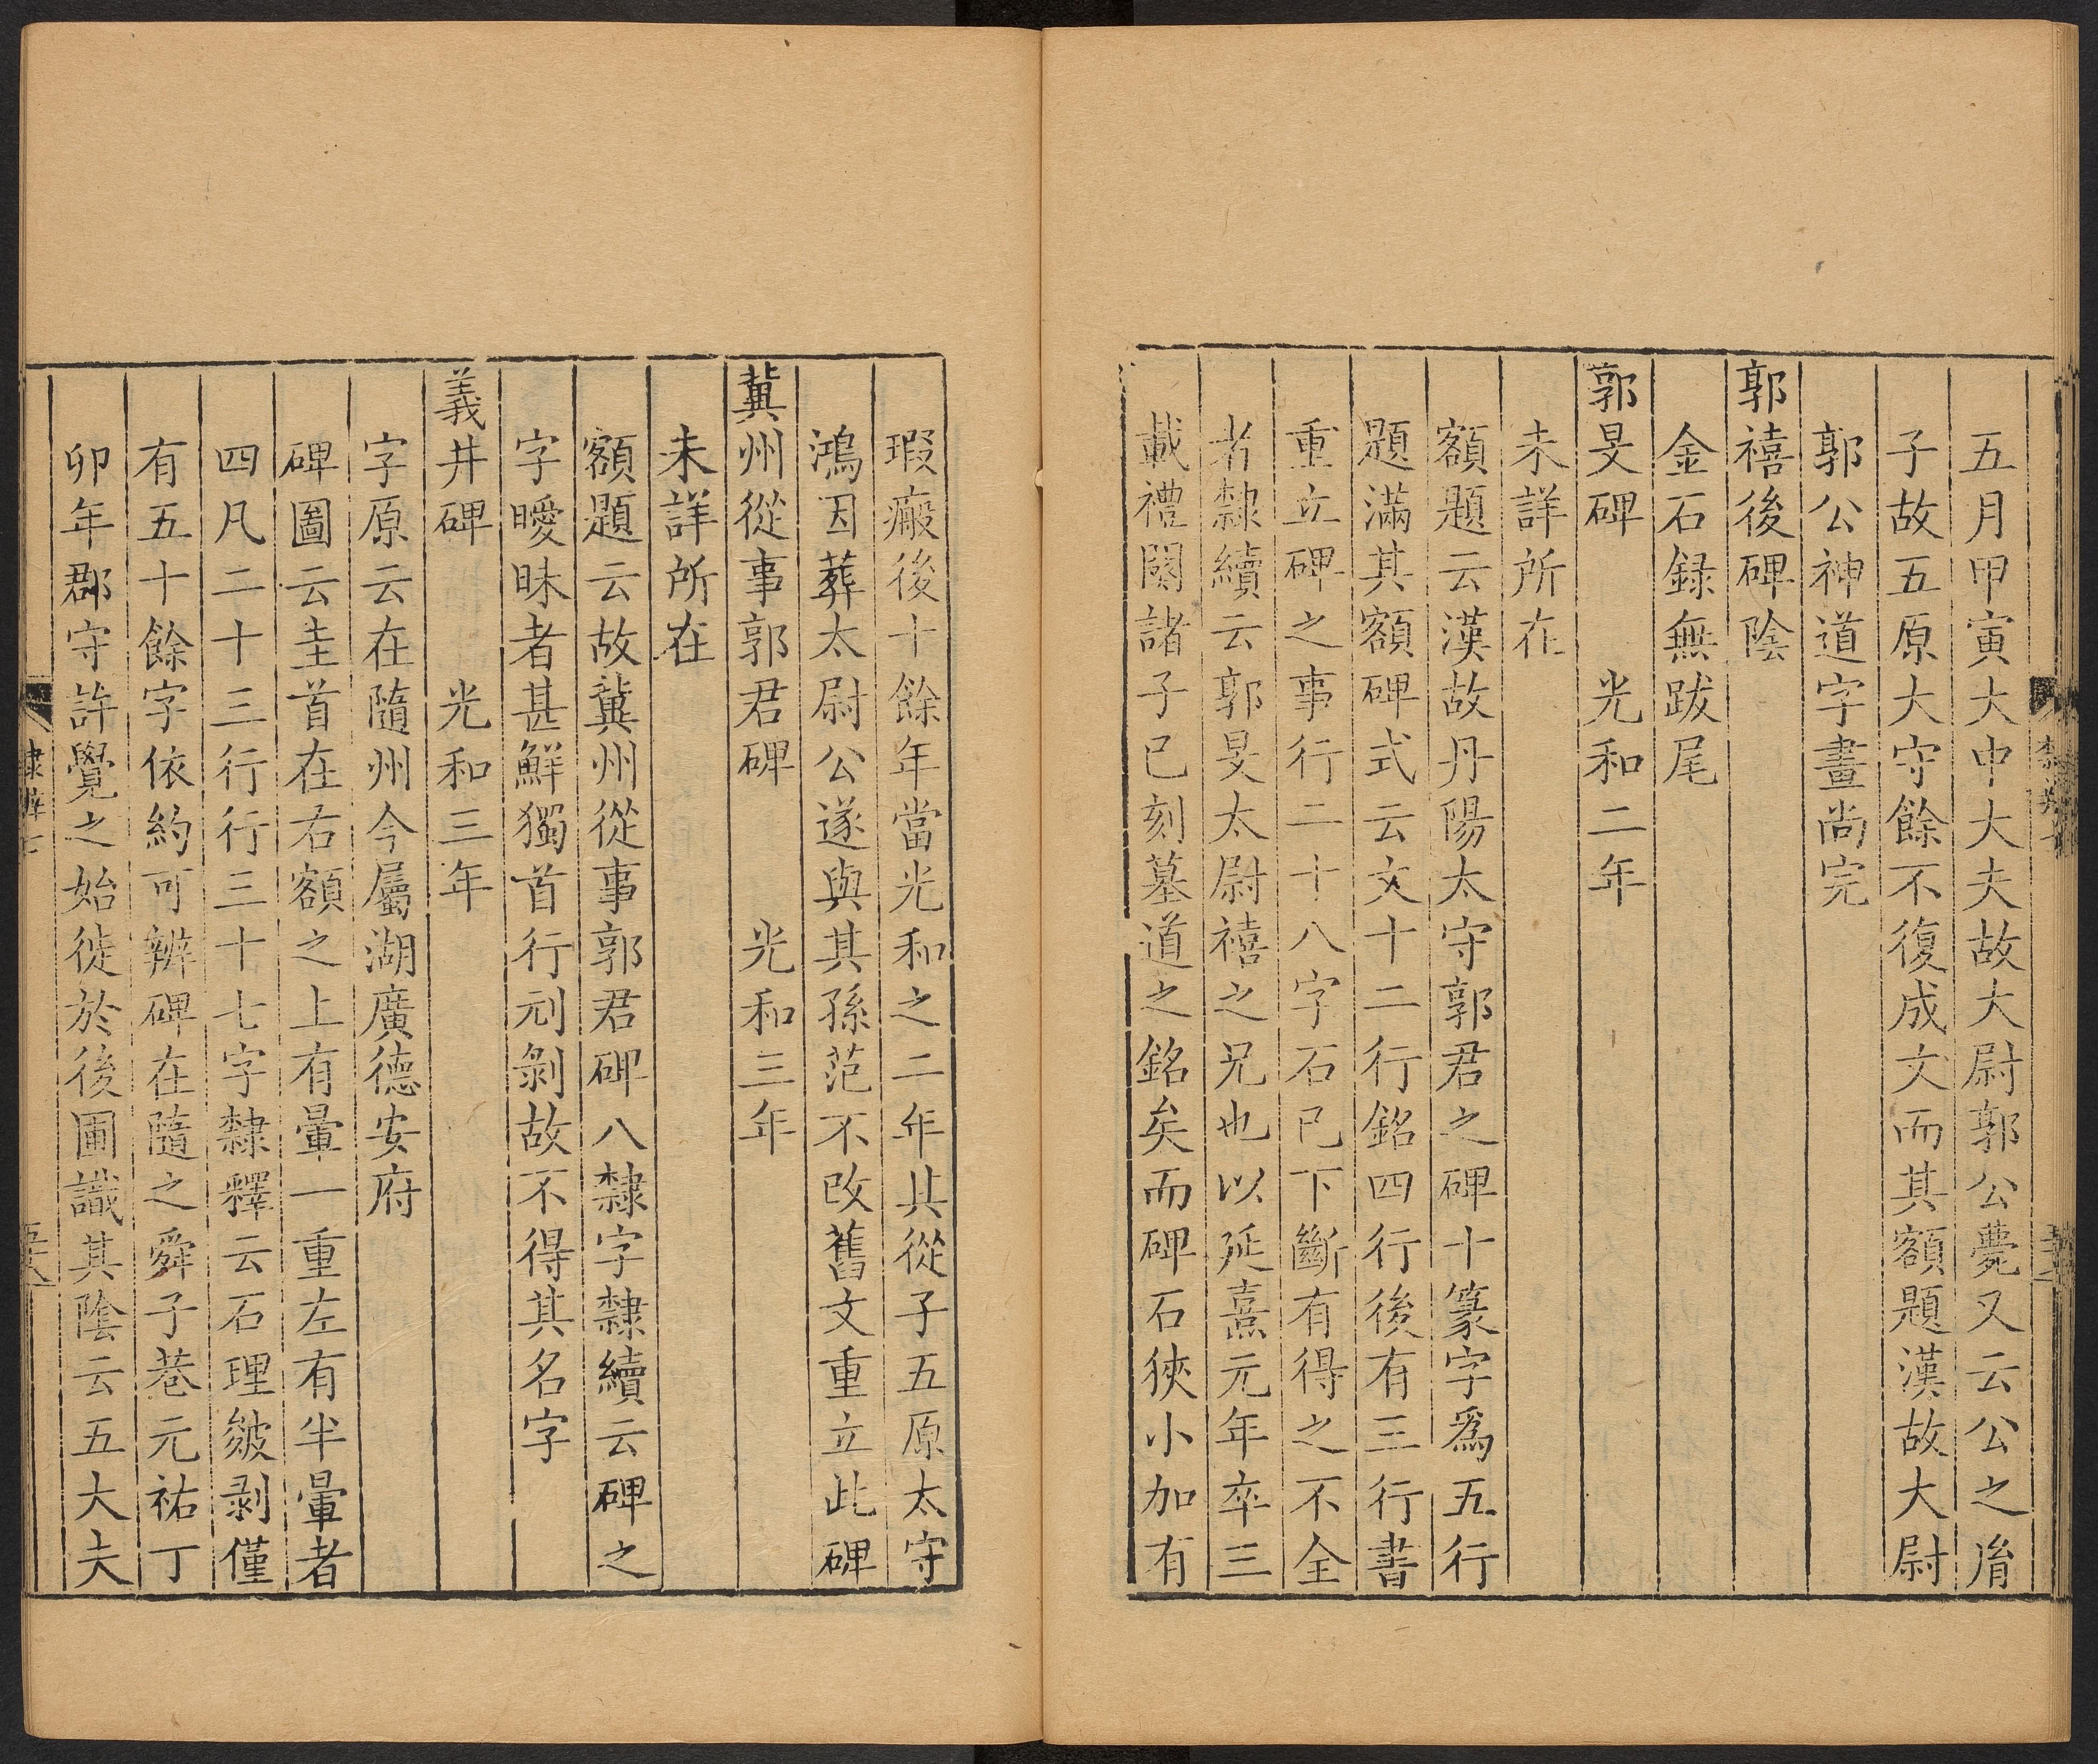 五月甲寅大中大夫故大尉郭公薨又云公之胄
子故五原大守餘不復成文而其額題漢故大尉
郭公神道字畫尚完
郭禧後碑陰
金石録無跋尾
郭旻碑　光和二年
未詳所在
額題云漢故丹陽太守郭君之碑十篆字爲五行
題滿其額碑式云文十二行銘四行後有三行書
重立碑之事行二十八字石已下斷有得之不全
者隸續云郭旻太尉禧之兄也以延熹元年卒三
載禮闋諸子已刻墓道之銘矣而碑石狹小加有
瑕瘢後十餘年當光和之二年其從子五原太守
鴻因葬太尉公遂與其孫范不改舊文重立此碑
冀州從事郭君碑　光和三年
未詳所在
額題云故冀州從事郭君碑八隸字隸續云碑之
字曖昧者甚鮮獨首行刓剝故不得其名字
義井碑　光和三年
字原云在隨州今屬湖廣德安府
碑圖云圭首在右額之上有暈一重左有半暈者
四凡二十三行行三十七字隸釋云石理皴剥僅
有五十餘字依約可辨碑在隨之舜子巷元祐丁
卯年郡守許覺之始徙於後圃識其陰云五大夫
隸辨七